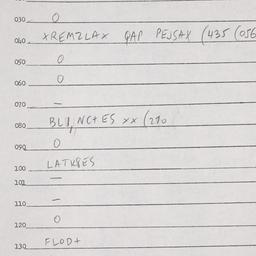 030 O
040 XREMZLAX QAP PEJSAX (435 (056
050 O
060 O
070 –
080 xx (210
090 O
100 LATKQES
101 –
110 –
120 O
130 FLOD+